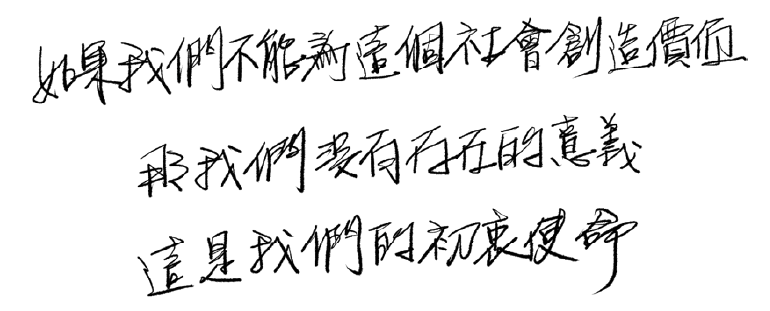 如果我們不能為這個社會創造價值
那我們沒有存在的意義
這是我們的初衷使命